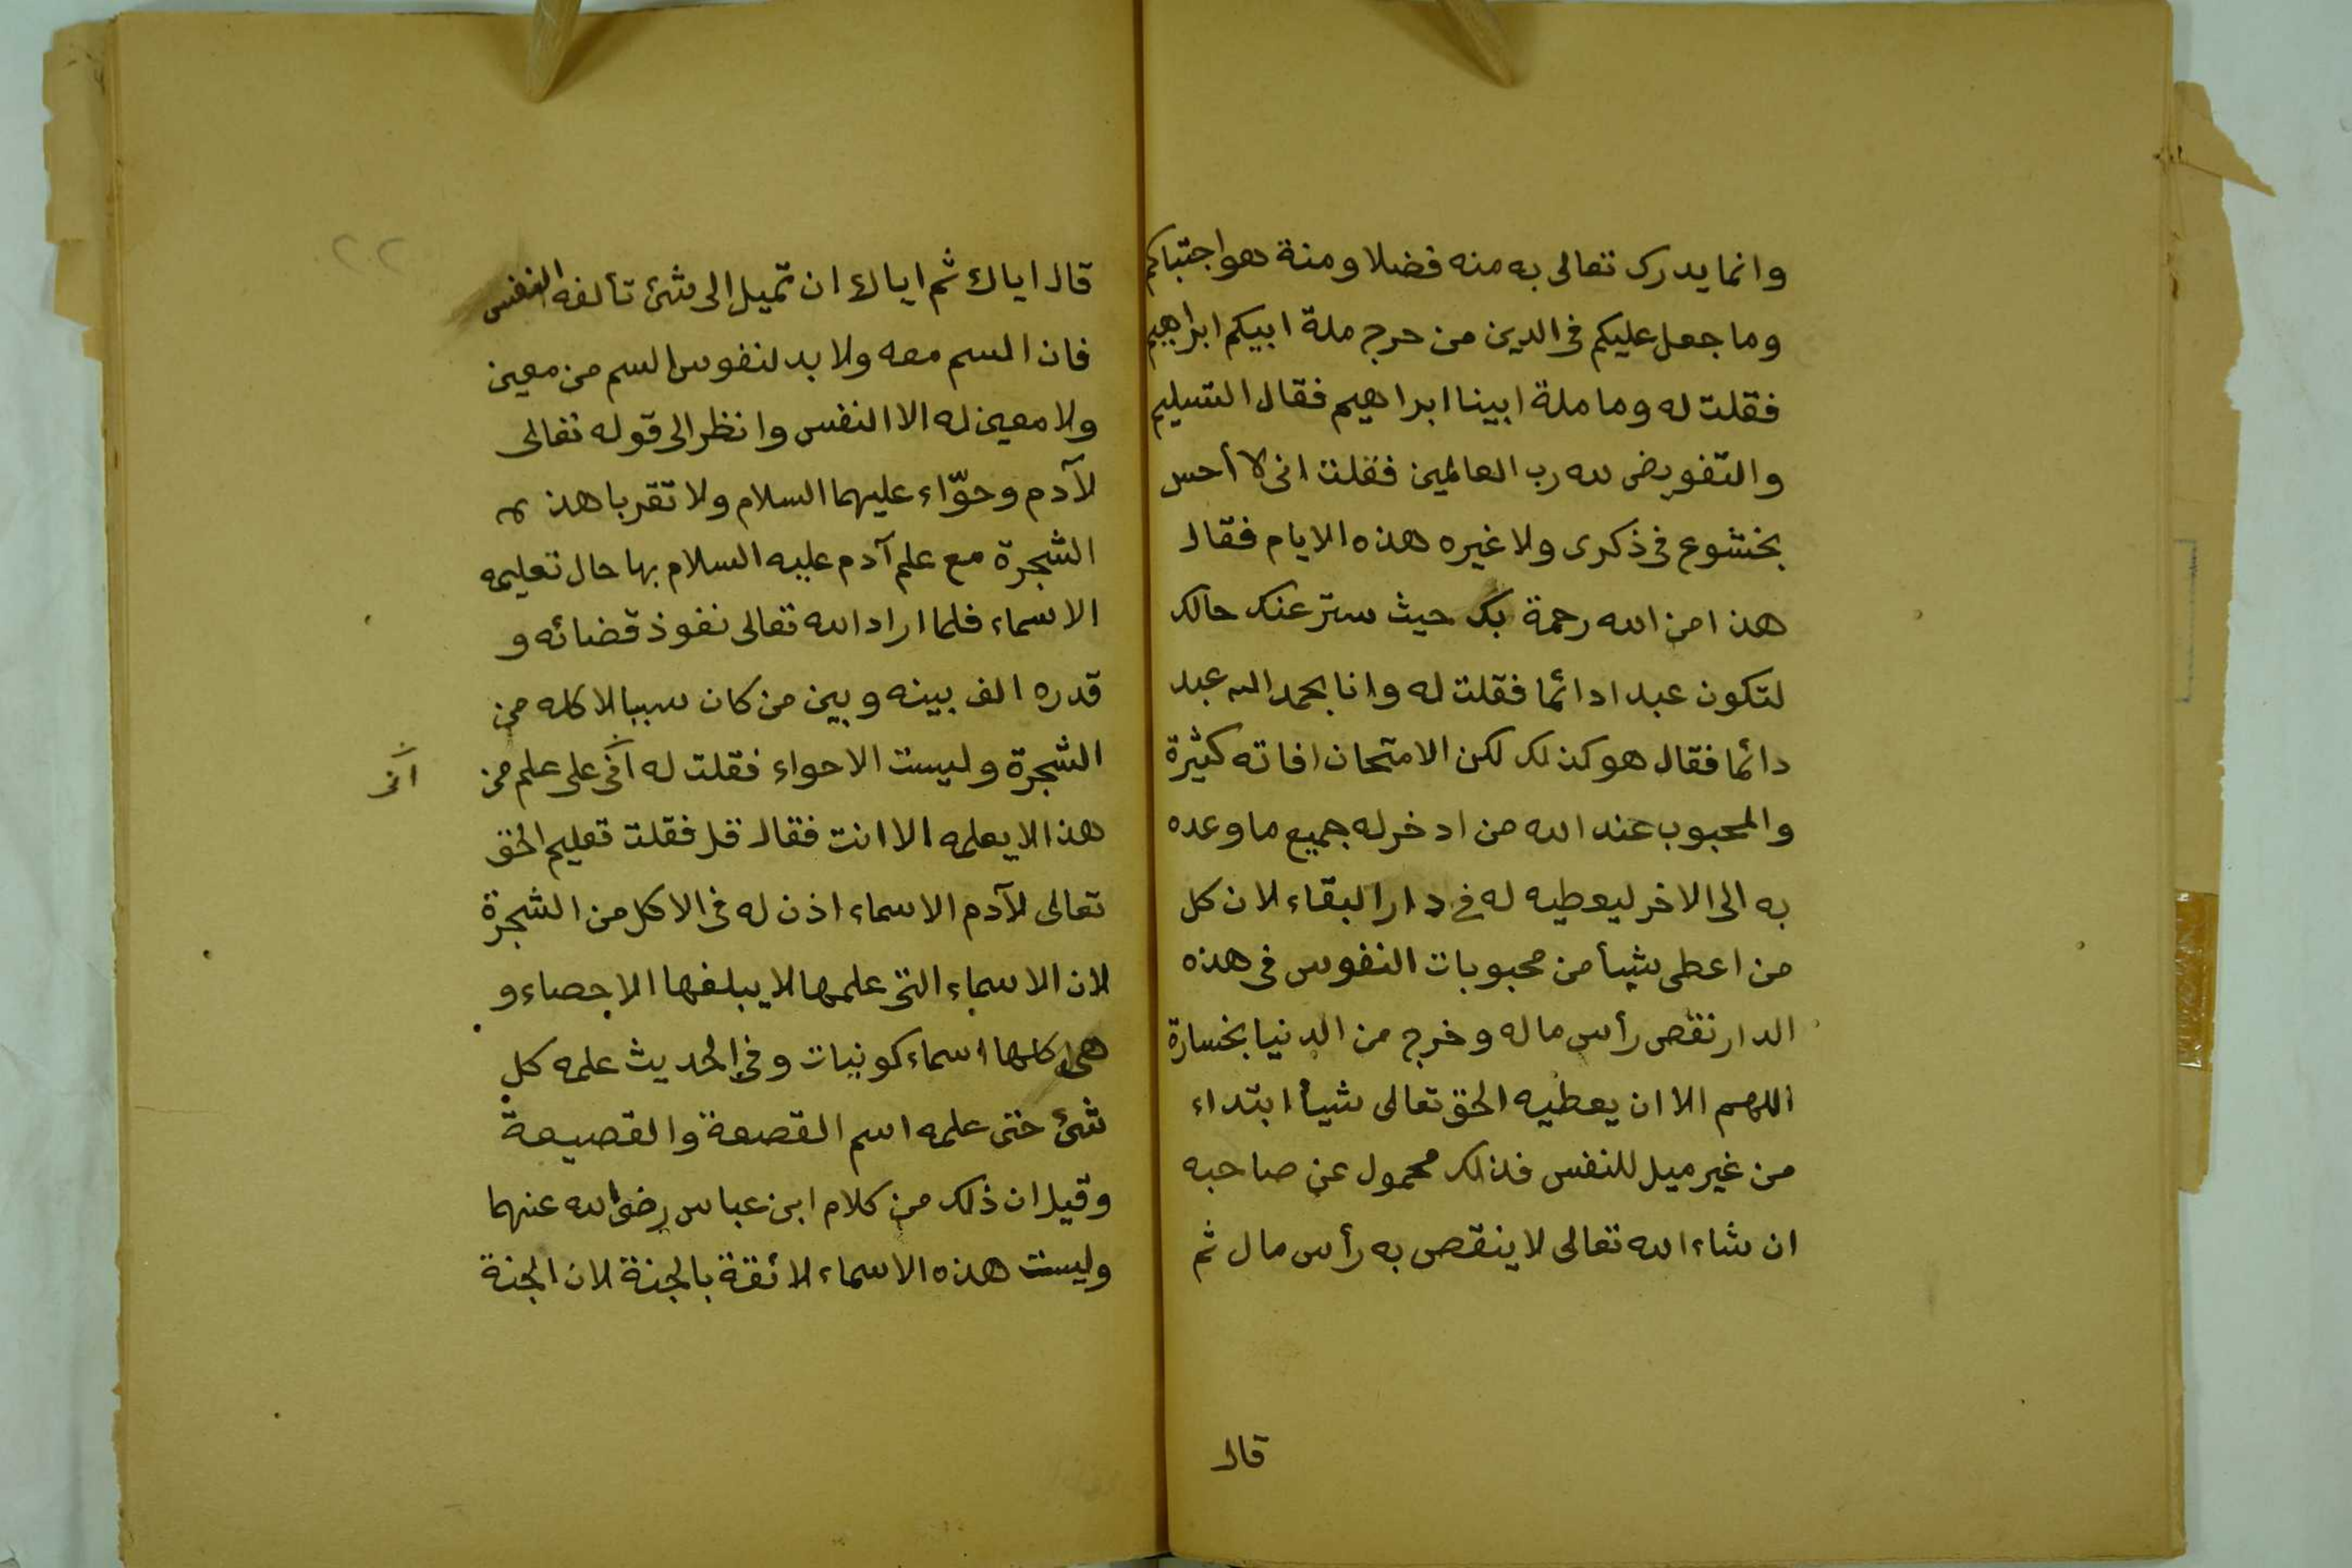 وانما يدرك تعالى به منه فضلا ومنة هو اجتباكم
وما جعل عليكم فى الدين من حرج ملة ابيكم ابراهيم
فقلت له وما ملة ابينا ابراهيم فقال التسليم
والتفويض لله رب العالمين فقلت انى لا أحس
بخشوع فى ذكرى ولا غيره هذه الايام فقال
هذا من الله رحمة بك حيث ستر عنك حالك
لتكون عبدا دائما فقلت له وانا بحمد الله عبد
دائما فقال هو كذلك لكن الامتحان افاته كثيرة
والمحبوب عند الله من ادخر له جميع ما وعده
به الى الاخر ليعطيه له فى دار البقاء لان كل
من اعطى شيأ من محبوبات النفوس فى هذه
الدار نقص رأس ماله وخرج من الدنيا بخسارة
اللهم الا ان يعطيه الحق تعالى شيأ ابتداء
من غير ميل للنفس فذلك محمول عن صاحبه
ان شاء الله تعالى لا ينقص به رأس مال ثم
قال
٢٢
قال اياك ثم اياك ان تميل الى شئ تألفه النفس
فان السم معه ولا بد لنفوس السم من معين
ولا معين له الا النفس وانظر الى قوله تعالى
لآدم وحوّاء عليهما السلام ولا تقربا هذه
الشجرة مع علم آدم عليه السلام بها حال تعليمه
الاسماء فلما اراد الله تعالى نفوذ قضائه و
قدره الف بينه وبين من كان سببا لاكله من
الشجرة وليست الا حواء فقلت له على علم من
هذا لا يعلمه الا انت فقال قل فقلت تعليم الحق
تعالى لآدم الاسماء اذن له فى الاكل من الشجرة
لان الاسماء التى علمها لا يبلغها الاحصاء و
هى كلها اسماء كونيات وفى الحديث علمه كل
شئ حتى علمه اسم القصعة والقصيعة
وقيل ان ذلك من كلام ابن عباس رضى الله عنهما
وليست هذه الاسماء لائقة بالجنة لان الجنة